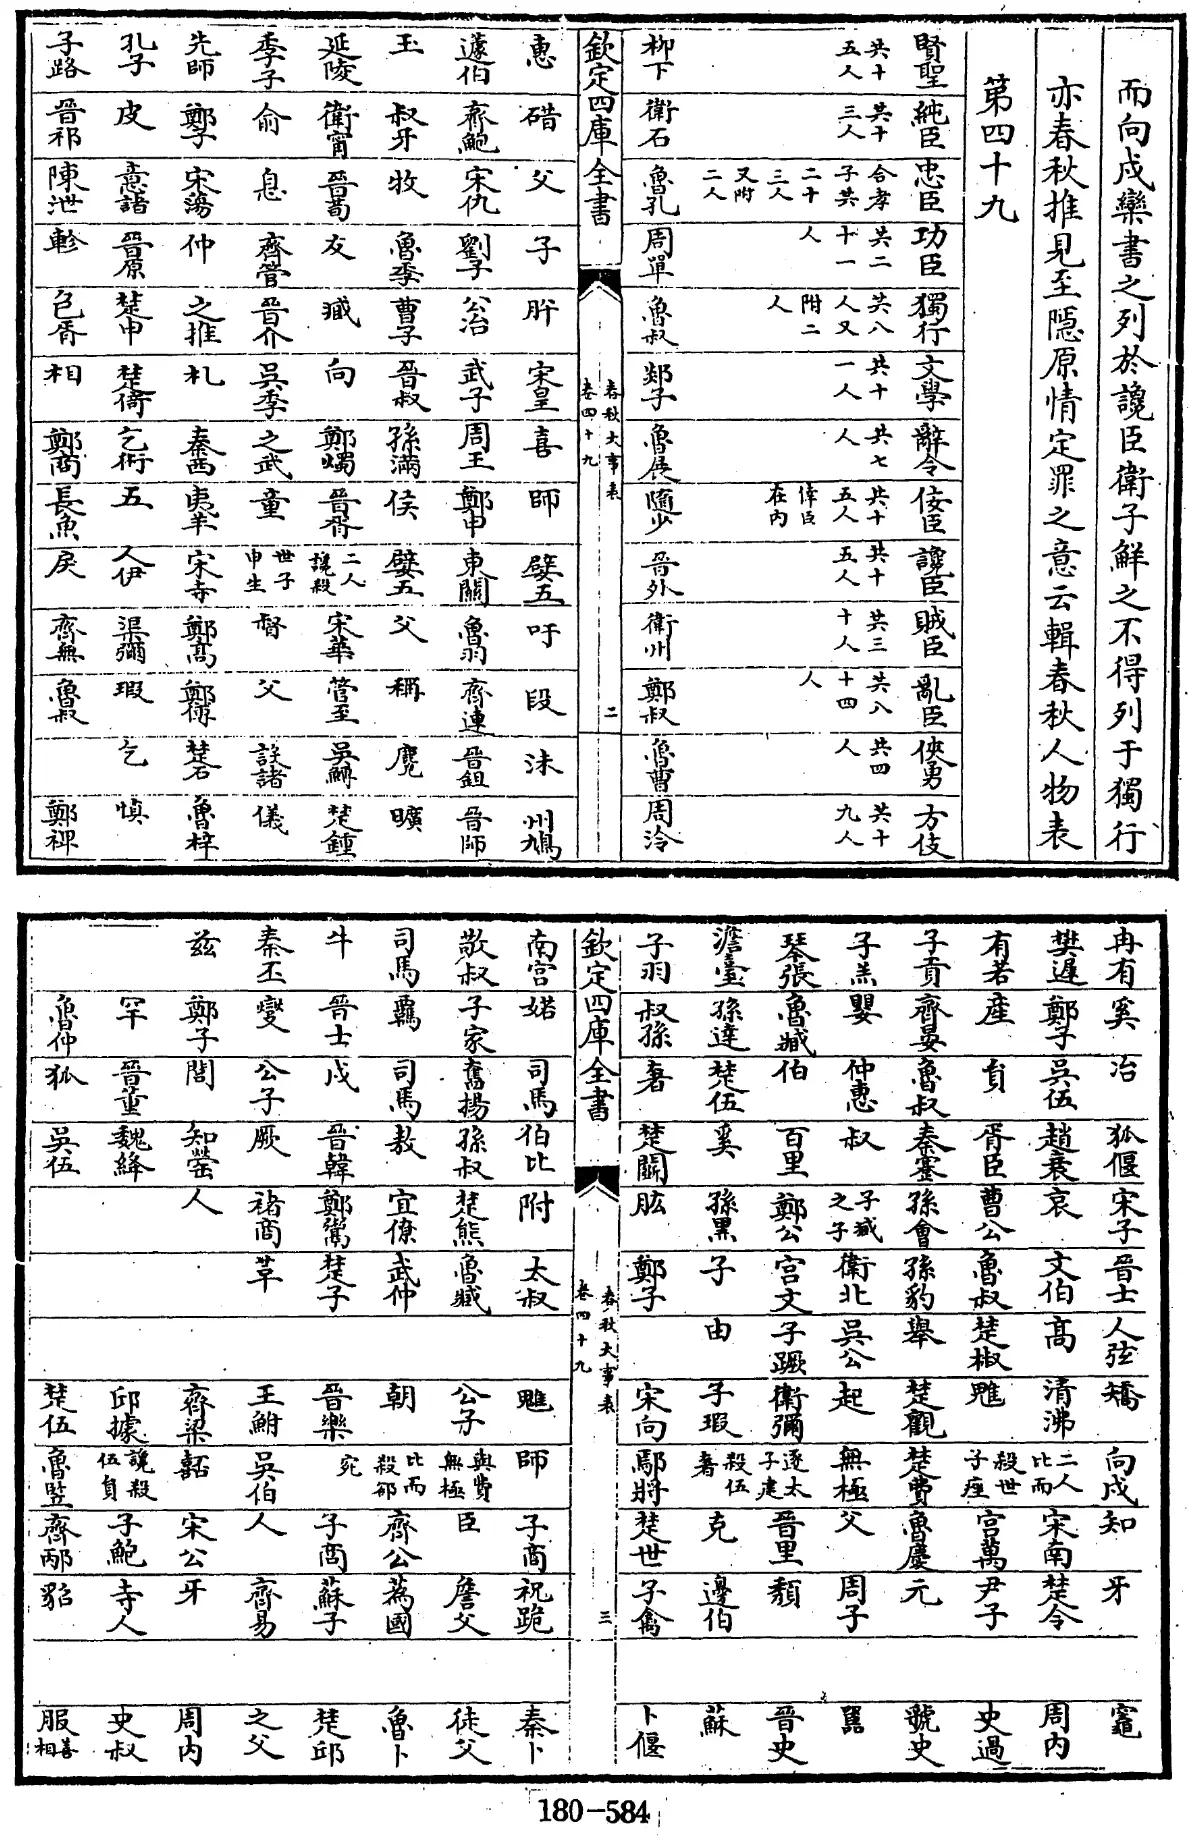 而向戌欒書之列於讒臣衛子鮮之不得列于獨行
亦春秋推見至隱原情定罪之意云輯春秋人物表
第四十九
賢聖共十五人 純臣共十三人 忠臣合孝子共二十三人又附二人 功臣共二十一人 獨行共八人又附二人 文學共十一人 辭令共七人 佞臣共十五人倖臣在內 讒臣共十五人 賊臣共三十人 亂臣共八十四人 俠勇共四人 方伎共十九人
柳下 衛石 魯孔 周單 魯叔 郯子 魯展 隨少 晉外 衛州 鄭叔 魯曹 周泠
欽定四庫全書 春秋大事表 卷四十九 二
惠 碏 父 子 肸 宋皇 喜 師 嬖五 吁 段 沬 州鳩
蘧伯 齊鮑 宋仇 劉子 公冶 武子 周王 鄭申 東關 魯羽 齊連 晉鉏 晉師
玉 叔牙 牧 魯季 曹子 晉叔 孫滿 侯 嬖五 父 稱 麑 曠
延陵 衛甯 晉荀 友 臧 向 鄭燭 晉胥 二人譖殺 宋華 管至 吳鱄 楚鍾
季子 俞 息 齊管 晉介 吳季 之武 童 世子申生 督 父 設諸 儀
先師 鄭子 宋蕩 仲 之推 札 秦西 夷羊 宋寺 鄭高 鄭傅 楚石 魯梓
孔子 皮 意諸 晉原 楚申 楚倚 乞術 五 人伊 渠彌 瑕 乞 慎
子路 晉祁 陳泄 軫 包胥 相 鄭商 長魚 戾 齊無 魯叔 鄭裨
冉有 奚 冶 狐偃 宋子 晉士 人弦 矯 向戌 知 牙 竈
樊遲 鄭子 吳伍 趙衰 哀 文伯 高 清沸 二人比而 宋南 楚令 周內
有若 產 員 胥臣 曹公 魯叔 楚椒 魋 殺世子痤 宮萬 尹子 史過
子貢 齊晏 魯叔 秦蹇 孫會 孫豹 舉 楚觀 楚費 魯慶 元 虢史
子羔 嬰 仲惠 叔 子臧之子 衛北 吳公 起 無極 父 周子 嚚
琴張 魯臧 伯 百里 鄭公 宮文 子蹶 衛彌 逐太子建 晉里 頹 晉史
澹臺 孫達 楚伍 奚 孫黑 子 由 子瑕 殺伍奢 克 邊伯 蘇
子羽 叔孫 奢 楚鬭 肱 鄭子 宋向 鄢將 楚世 子禽 卜偃
欽定四庫全書 春秋大事表 卷四十九 三
南宮 婼 司馬 伯比 附 太叔 魋 師 子商 祝跪 秦卜
敬叔 子家 奮揚 孫叔 楚熊 魯臧 公子 與費無極 臣 詹父 徒父
司馬 羈 司馬 敖 宜僚 武仲 朝 比而殺郤 齊公 蒍國 魯卜
牛 晉士 戍 晉韓 鄭鬻 楚子 晉樂 宛 子商 蘇子 楚邱
秦丕 燮 公子 厥 褚商 革 王鮒 吳伯 人 齊易 之父
茲 鄭子 閭 知罃 人 齊梁 嚭 宋公 牙 周內
罕 晉董 魏絳 邱據 譖殺伍員 子鮑 寺人 史叔
魯仲 狐 吳伍 楚伍 魯豎 齊邴 貂 服相善
180-584